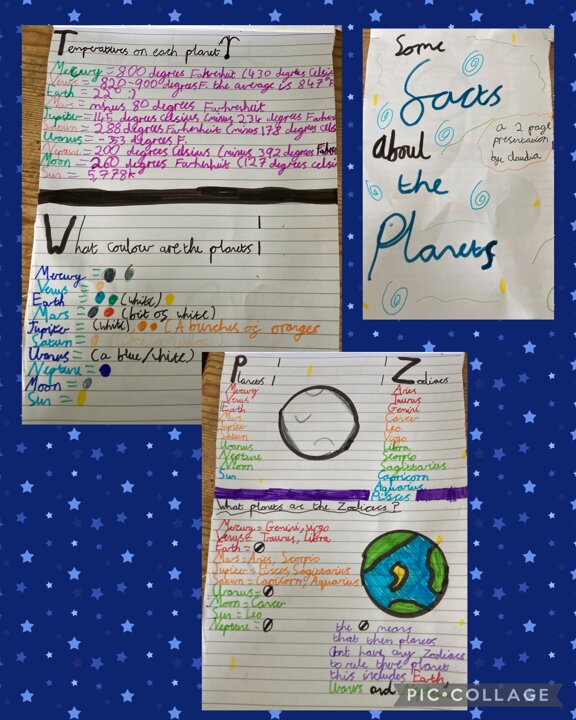 Temperatures on each planet
Mercury = 800 degrees Fahrenheit (430 degrees Celsi
Venus = 820-900 degrees F. the average is 847°F
Earth = 22° :)
Mars = minus 80 degrees Farhenheit
Jupiter = 145 degrees celsius (minus 234 degrees Farhen
Saturn = 288 degrees Farhenheit (minus 178 degrees cels
Uranus = 53 degrees F.
Neptune = 200 degrees Celsius (minus 392 degrees
Moon = 260 degrees Farhenheit (127 degrees celsi
Sun = 5,778K
What coulour are the planets!
Mercury =
Venus =
Earth = (white)
Mars = (bit of white)
Jupiter = (white), (A bunch of oranges
Saturn =
Uranus = (a blue/white)
Neptune =
Moon =
Sun =
Some
facts
about
the
Planets
a 2 page
presentation
by: claudia
Planets
Mercury
Venus
Earth
Mars
Jupiter
Saturn
Uranus
Neptune
Moon
Sun
Zodiacs
Aries
Taurus
Gemini
Cancer
Leo
Virgo
Libra
Scorpio
Sagittarius
Capricorn
Aquarius
Pisces
What planets are the Zodiacs?
Mercury = Gemini, Virgo
Venus = Traurus, Libra
Earth =
Mars = Aries, Scorpio
Jupiter = Pisces, Sagittarius
Saturn = Capicorn, Aquarius
Uranus =
Moon = Cancer
Sun = Leo
Neptune =
the means
that them planets
dont have any Zodiacs
to rule there planet
this includes Earth,
Uranus and
PIC•COLLAGE